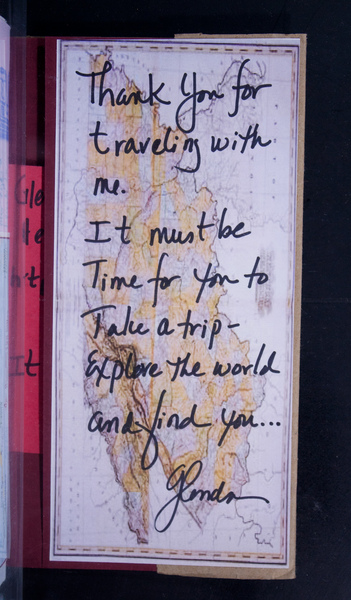 Thank You for
traveling with
me.
It must be
Time for you to
Take a trip-
Explore the world
and find you...
Glenda
It